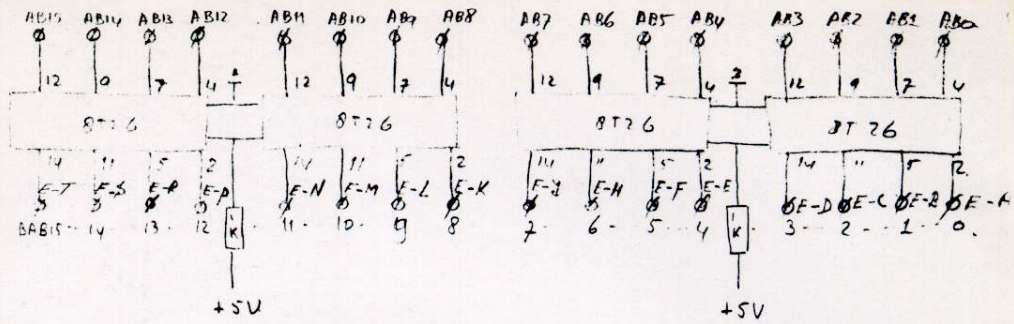 AB15 AB14 AB13 AB12 AB11 AB10 AB9 AB8 AB7 AB6 AB5 AB4 AB3 AB2 AB1 AB0
12 9 7 4 12 9 7 4 12 9 7 4 12 9 7 4
8T26 8T26 8T26 8T26
14 11 5 2 14 11 5 2 14 11 5 2 14 11 5 2
E-T E-S E-R E-P E-N E-M E-L E-K E-J E-H E-F E-E E-D E-C E-B E-A
BAB15 14 13 12 1K 11 10 9 8 7 6 5 4 1K 3 2 1 0
+5V +5V